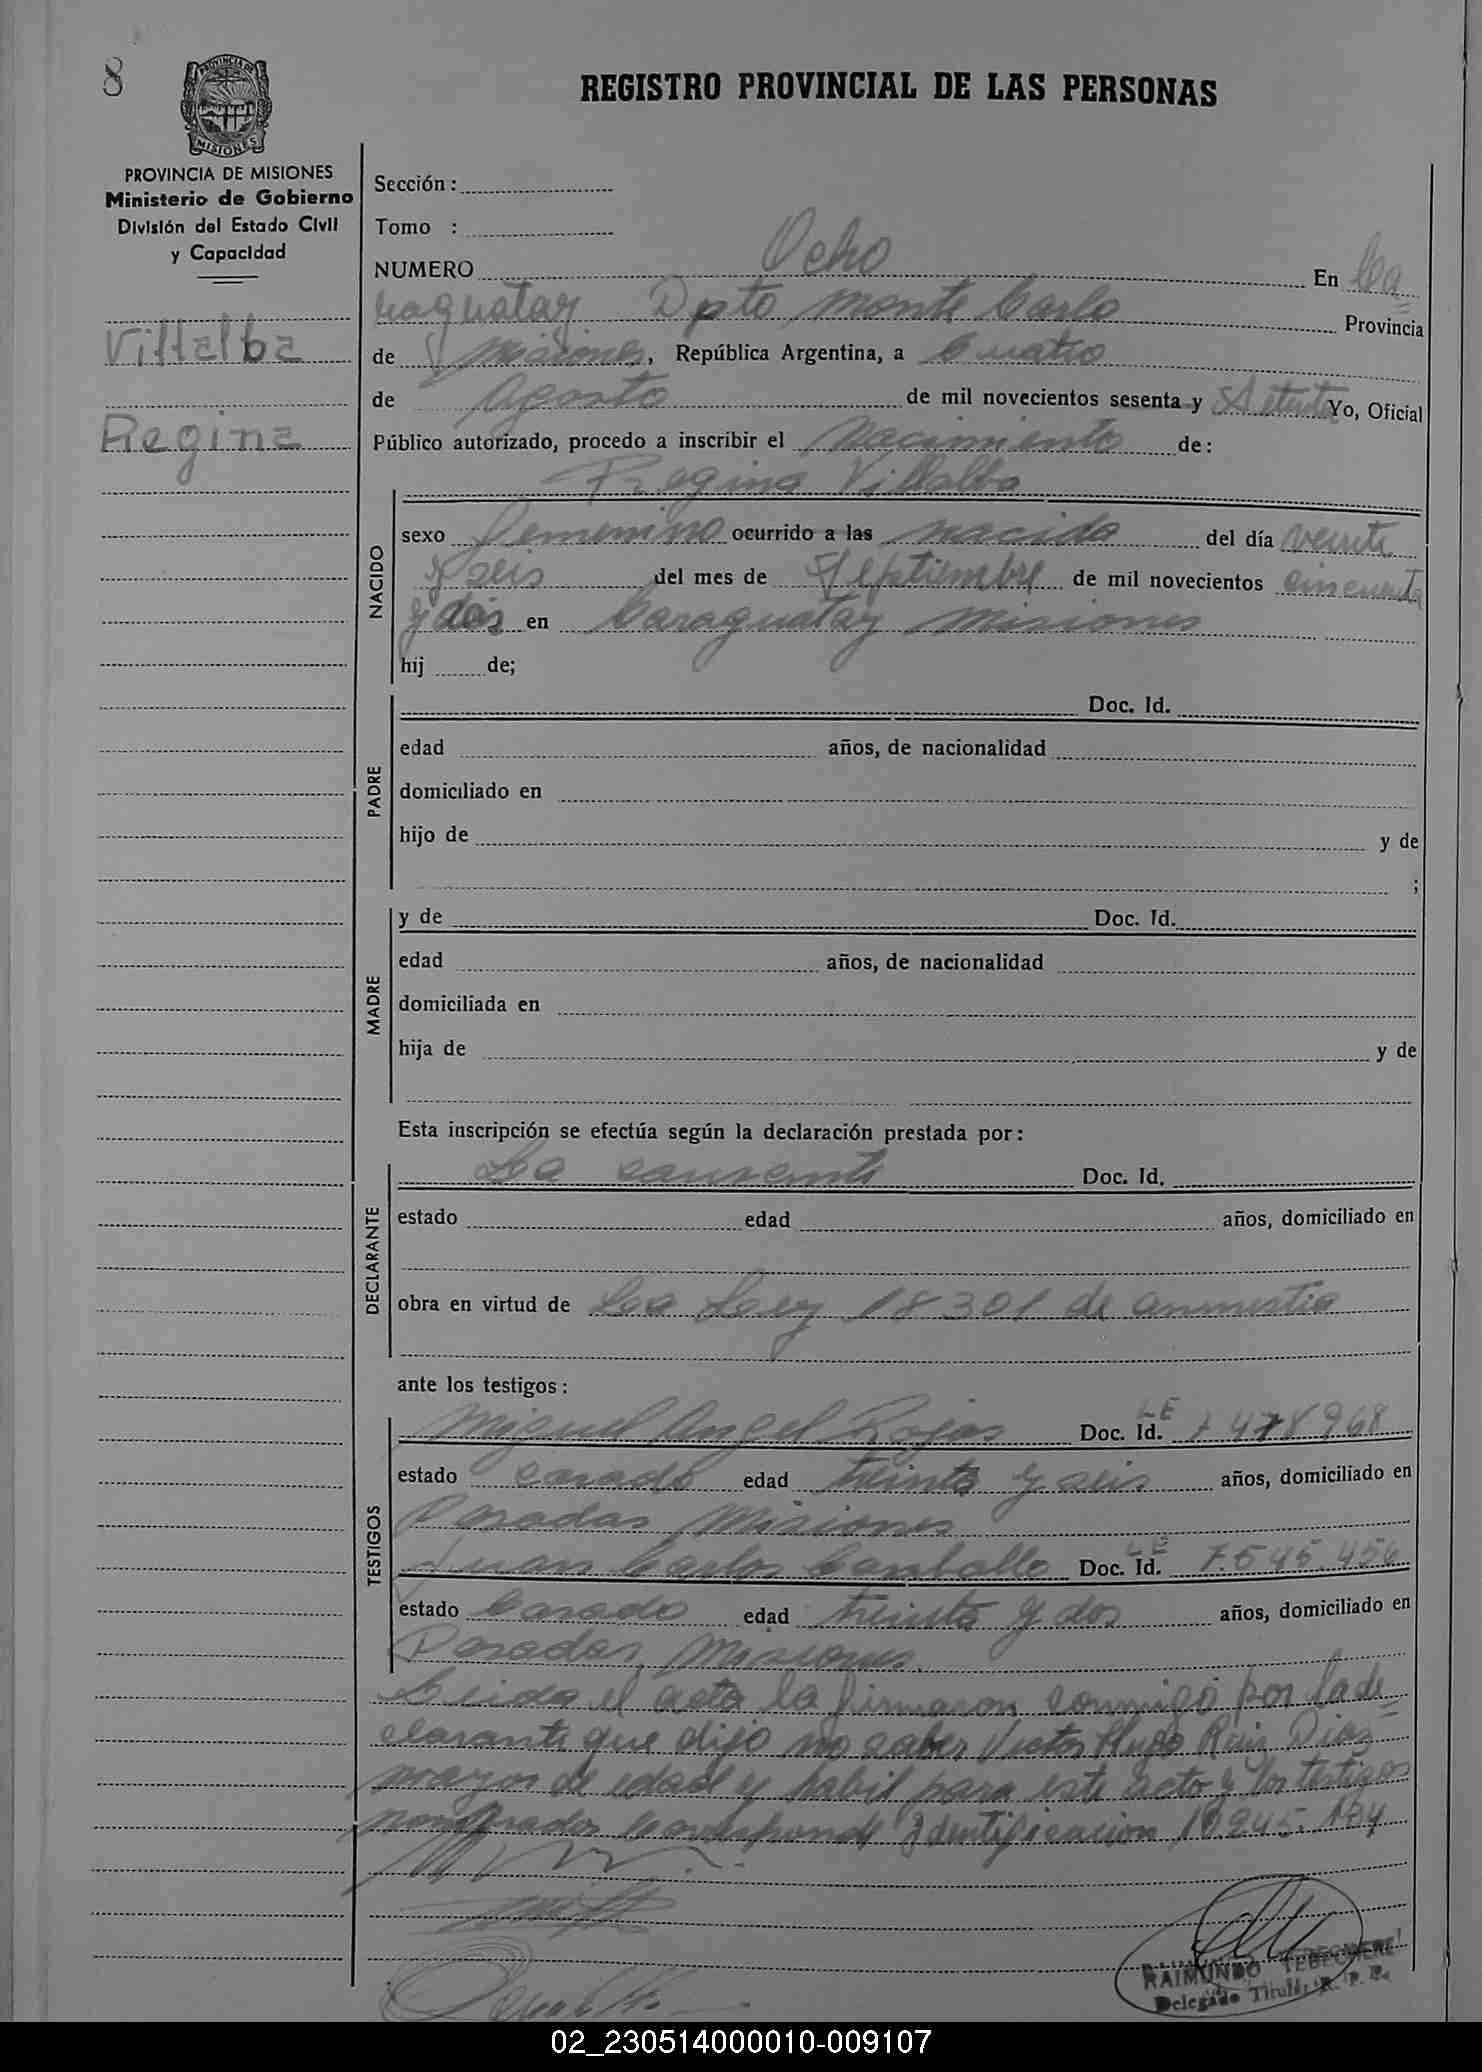 8
PROVINCIA DE
MISIONES
REGISTRO PROVINCIAL DE LAS PERSONAS
PROVINCIA DE MISIONES
Ministerio de Gobierno
División del Estado Civil
y Capacidad
Villalba
Regina
Sección:
Tomo :
NUMERO Ocho En Ca=
raguatay Dpto Monte Carlo Provincia
de Misiones, República Argentina, a Cuatro
de Agosto de mil novecientos sesenta y Yo, Oficial
Público autorizado, procedo a inscribir el Nacimiento de:
Regina Villalba
NACIDO
sexo Femenino ocurrido a las nacida del día veinte
y seis del mes de Septiembre de mil novecientos cincuenta
y dos en Caraguatay Misiones
hij de;
PADRE
Doc. Id.
edad años, de nacionalidad
domiciliado en
hijo de y de
;
MADRE
y de Doc. Id.
edad años, de nacionalidad
domiciliada en
hija de y de
Esta inscripción se efectúa según la declaración prestada por:
DECLARANTE
La causante Doc. Id.
estado edad años, domiciliado en
obra en virtud de La Ley 18301 de amnistia
ante los testigos:
TESTIGOS
Miguel Angel Rojas Doc. Id. LE 7478968
estado casado edad treinta y seis años, domiciliado en
Posadas Misiones
Juan Carlos Carballo Doc. Id. LE 7.545.456
estado Casado edad treinta y dos años, domiciliado en
Posadas, Misiones.
Leida el acta la firmaron conmigo por la de=
clarante que dijo no saber Victor Hugo Ruiz Diaz
mayor de edad y habil para este acto y los testigos
nombrados Corresponde Identificacion 10.245.194
RAIMUNDO
Delegado Titular R. P. P.
02_230514000010-009107